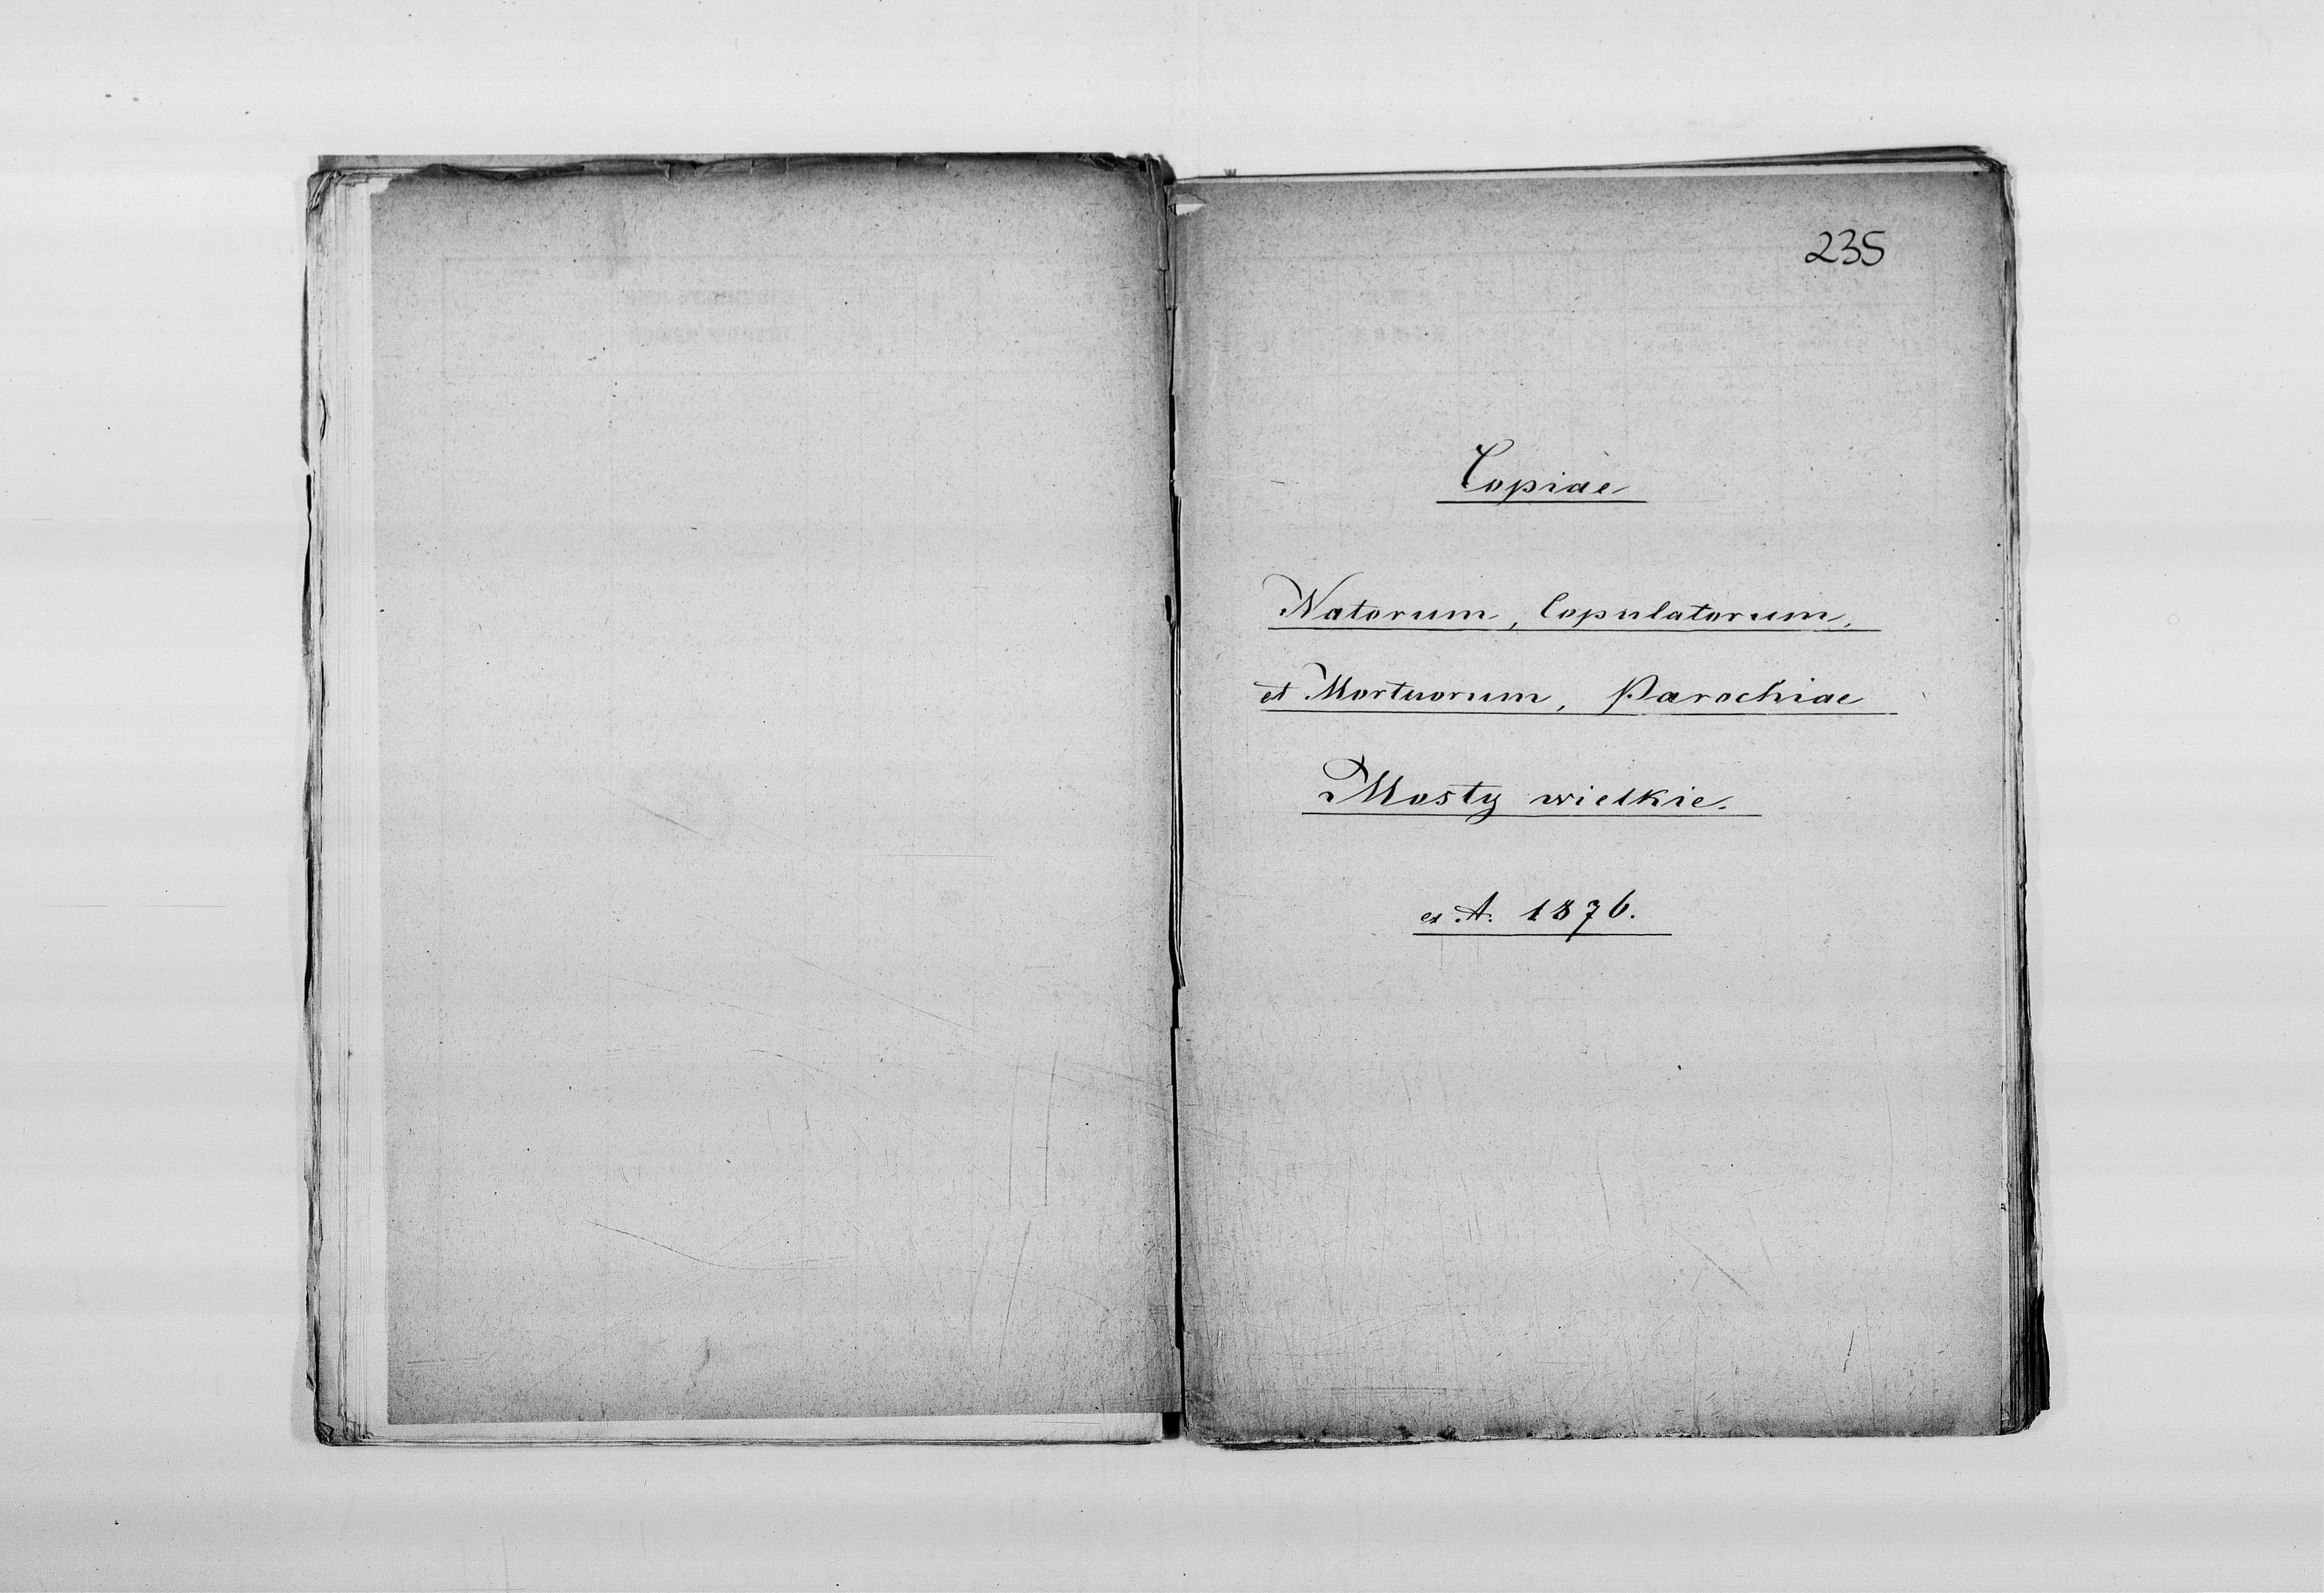 235
Copiae
Natorum, Copulatorum,
et Mortuorum, Parochiae
Mosty wielkie.
ex A. 1876.